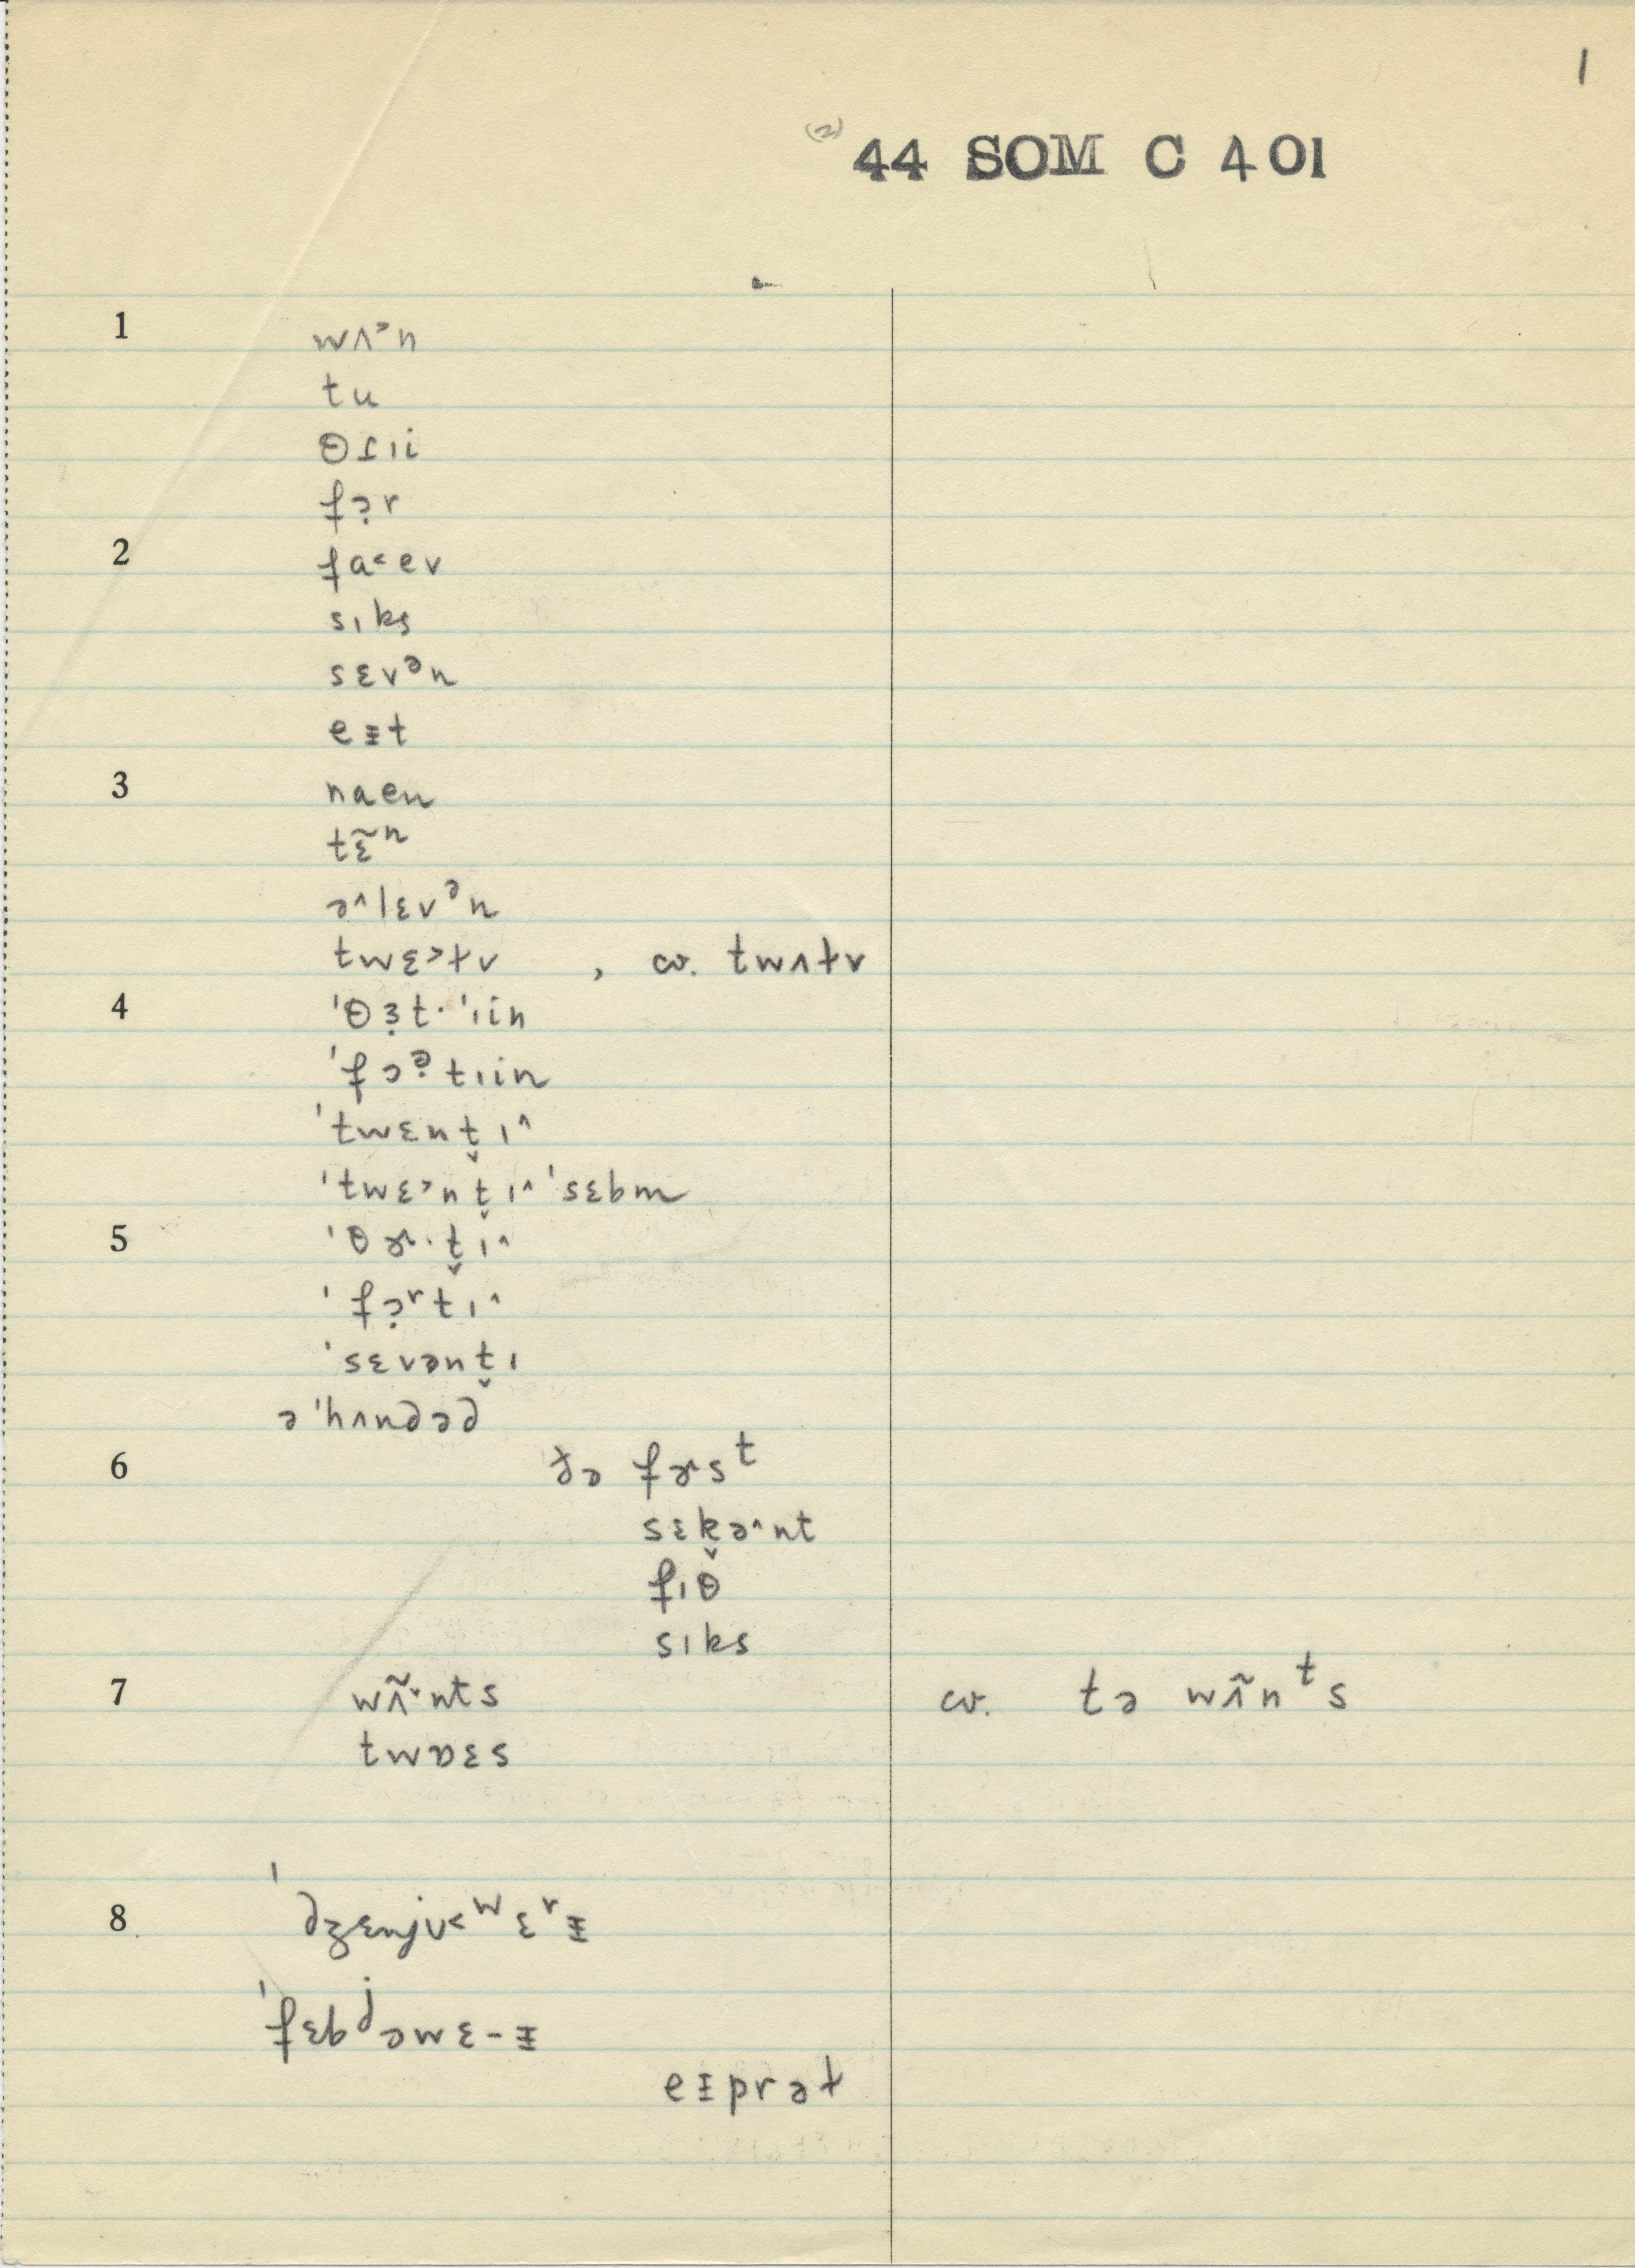 1
(2) 44 SOM C 401
1 wʌ˃n
tu
θɾɪi
fɔ̣r
2 fa˂ev
sɪks
sɛvᵊn
eᵻt
3 naen
tɛ̃ⁿ
ə^lɛvᵊn
twɛ˃ɫv , cv. twʌɫv
4 ˈθɜ̣t·ˈɪin
ˈfɔə̣tɪin
ˈtwɛnt̬ɪ^
ˈtwɛ˃nt̬ɪ^ˈsɛbm
5 ˈθɚ·t̬ɪ^
ˈfɔ̣ʳtɪ^
ˈsɛvənt̬ɪ
ə ˈhʌndəd
6 ðə fɚsᵗ
sɛk̬ə^nt
fɪθ
sɪks
7 wʌ̃˅nts cv. tə wʌ̃nᵗs
twɒɛs
8 ˈdʒɛnjʊ˂ʷɛʳᵻ
ˈfɛbʲəwɛ-ᵻ
eᵻprəɫ